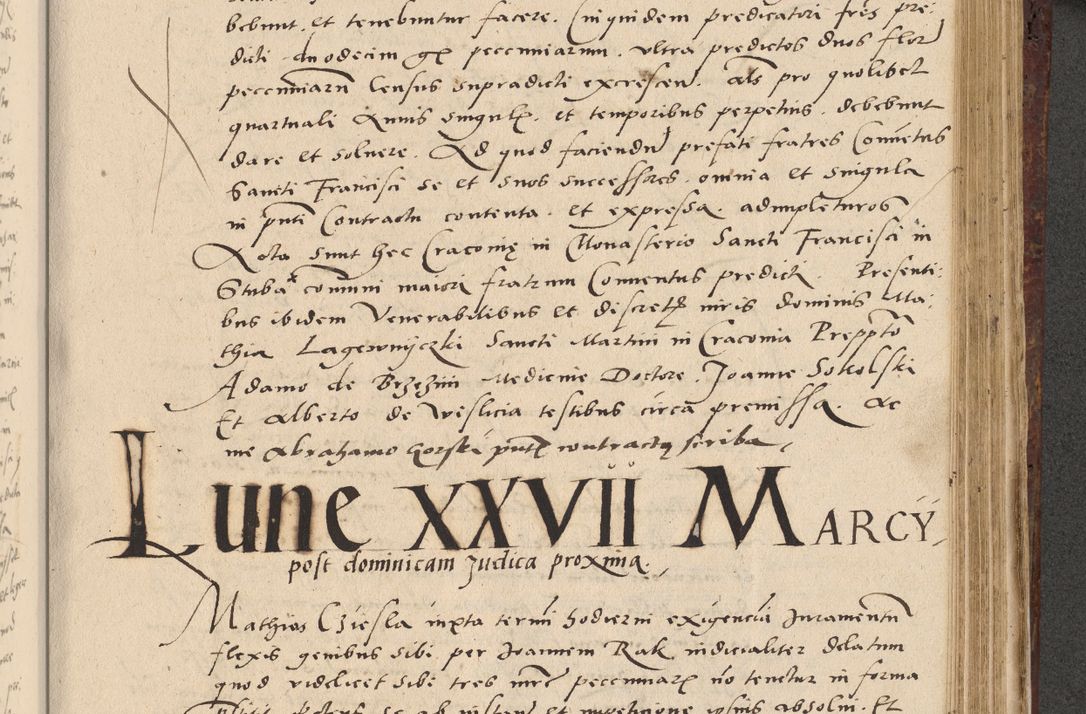 bebunt, et tenebuntur facere. Cuiquidem predicatori fres pre-
dicti duodecim gr pecuniarum. ultra predictos duos flor
pecuniarū census supradicti excrescen. Als pro quolibet
quartuali Annis singul. et temporibus perpetuis. debebunt
dare et soluere. Ad quod faciendū prefati fratres Conuetus
Sancti Francisci se et suos successores. omnia et singula
in pnti Contractu contenta. et expressa. adimpleturos
Acta sunt hec Cracouię in Monasterio Sancti Francisci in
Stuba comuni maiori fratrum Conuentus predicti. Presenti-
bus ibidem Venerabilibus et discret uiris dominis Ma-
thia Lagewnijczki Sancti Martini in Cracouia Preppto
Adamo de Brzęzini Medicine Doctore. Joanne Sokolski
Et Alberto de Wislicia testibus circa premissa. Ac
me Abrahamo Gorski pnt contractus scriba
Lune XXVII Marcÿ
post dominicam Judica proxima.
Mathias Cziesla iuxta termi hodierni exigencia Juramentū
flexis genibus sibi per Joannem Rak iudicialiter delatum
quod videlicet sibi tres mrc pecuniar no tenetur in forma
se ab et impeticione ipsius absolui. Et